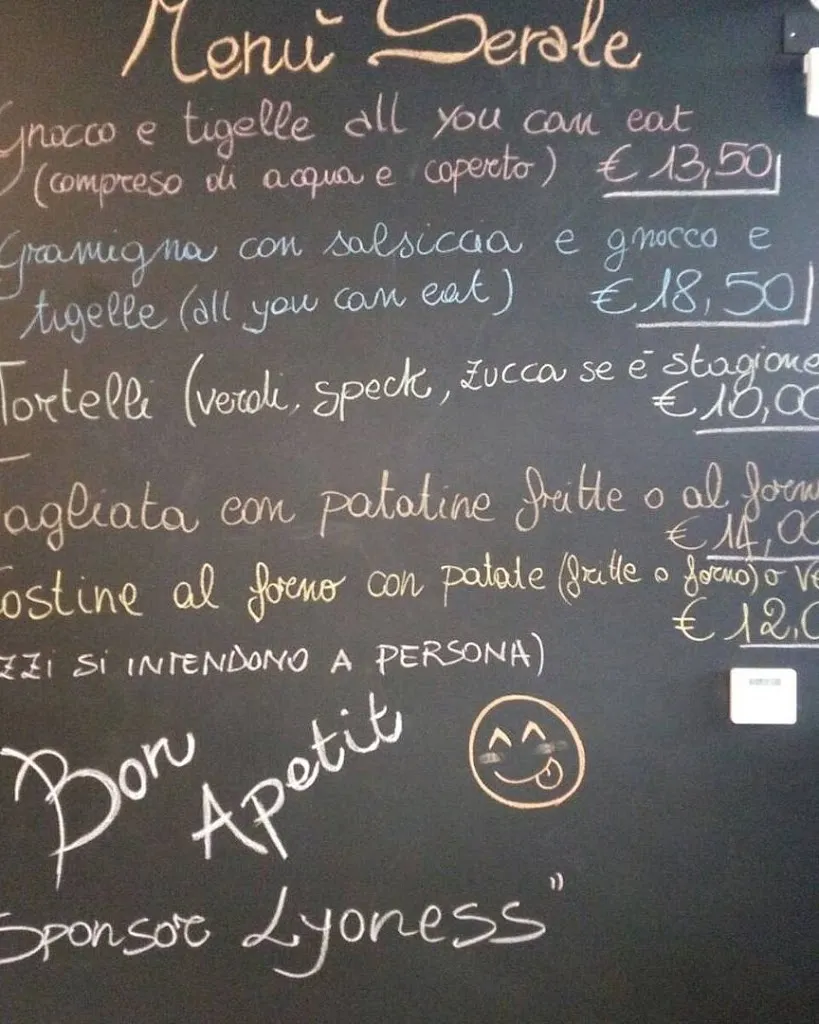 Menù Serale
Gnocco e tigelle all you can eat
(compreso di acqua e coperto) € 13,50
Gramigna con salsiccia e gnocco e
tigelle (all you can eat) € 18,50
Tortelli (verdi, speck, zucca se è stagione
€ 10,00
Tagliata con patatine fritte o al forn
€ 14,00
Costine al forno con patate (fritte o forno) o ve
€ 12,0
ZZI SI INTENDONO A PERSONA)
Bon
Apetit
Sponsor Lyoness"